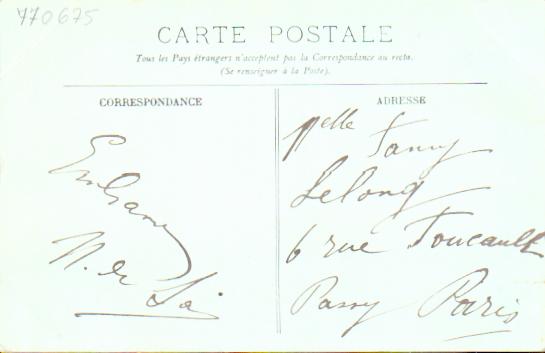 770675
CARTE POSTALE
Tous les Pays étrangers n'acceptent pas la Correspondance au recto.
(Se renseigner à la Poste).
CORRESPONDANCE
N. de
ADRESSE
Melle Fanny
Lelong
6 rue Foucault
Passy Paris